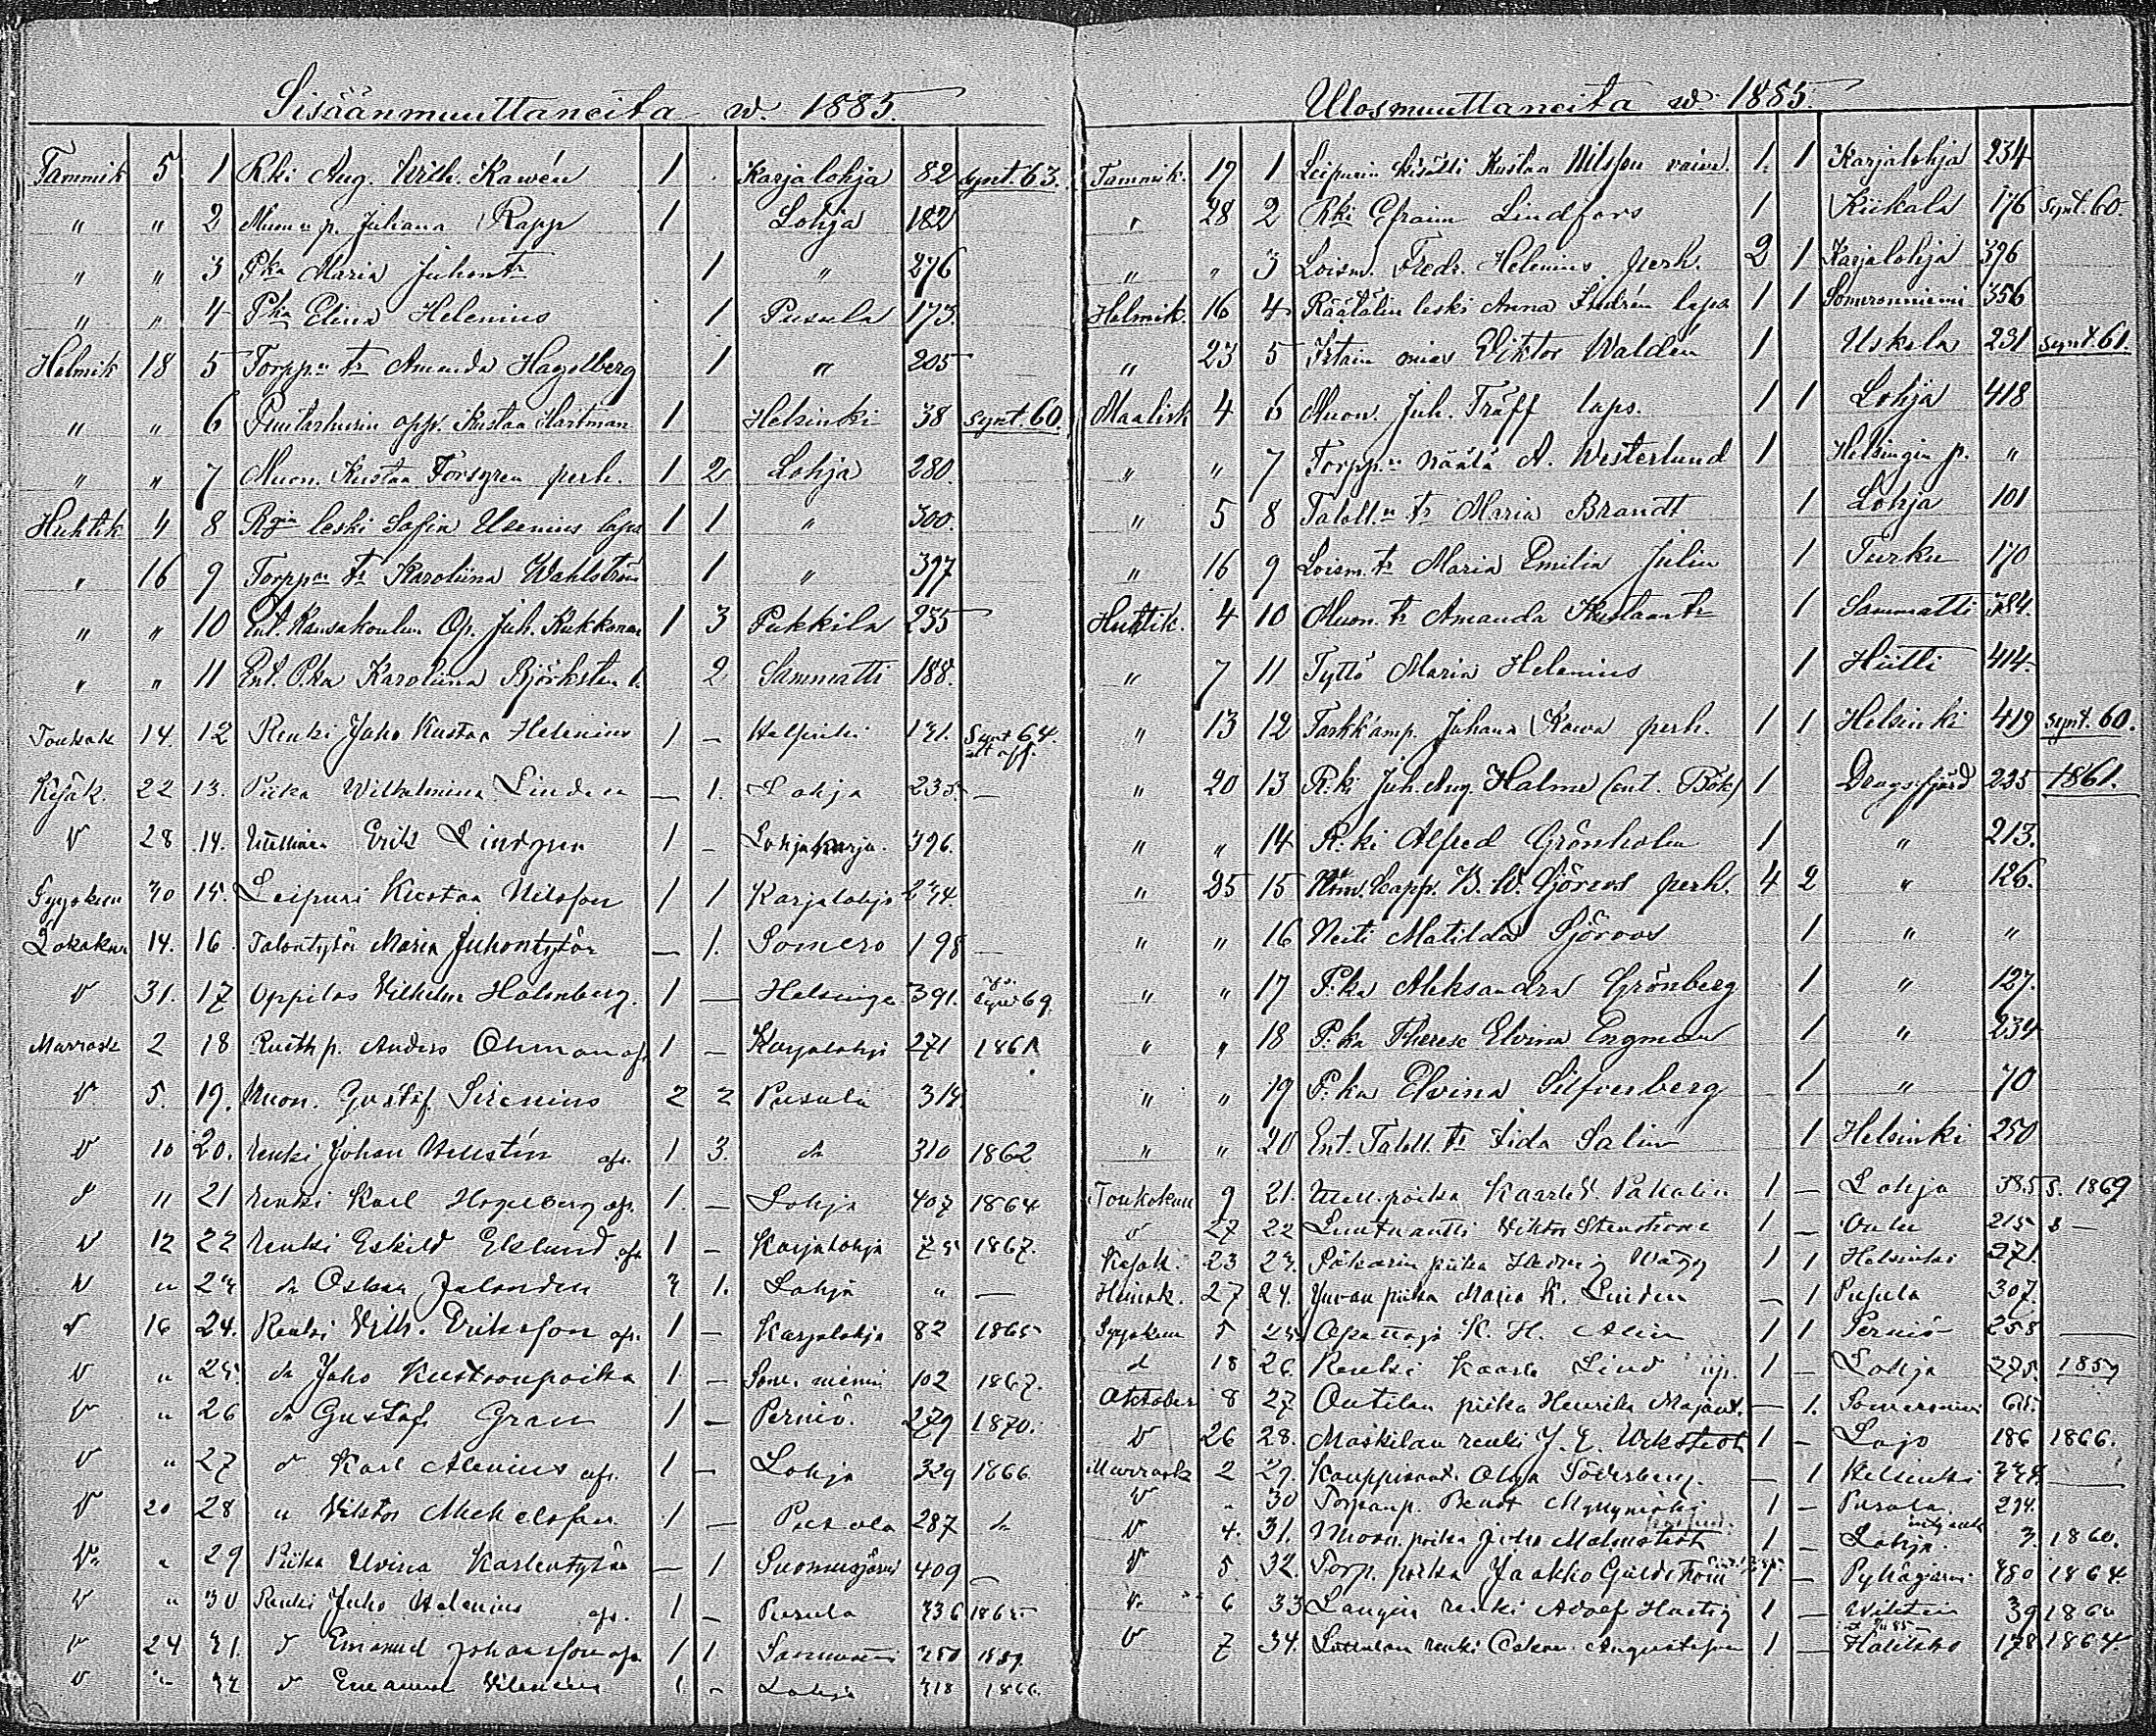 Sisäänmuuttaneita w. 1885.
Tammik 5 1 Rki Aug. Wilh. Kawén 1 Karjalohja 82 synt. 63.
" " 2 Muon p. Juhana Rapp 1 Lohja 182
" " 3 Pka Maria Juhontr 1 " 276
" " 4 Pka Elina Helenius 1 Pusula 173.
Helmik 18 5 Torpp.n tr Amanda Hagelberg 1 " 205
" " 6 Puutarhurin opp. Kustaa Hartman 1 Helsinki 38 synt. 60.
" " 7 Muon. Kustaa Forsgren perh. 1 2 Lohja 280.
Huhtik 4 8 leski Sofia Usenius laps 1 1 " 300.
" 16 9 Torpp.n tr Karoliina Wahlström 1 " 397
" " 10 Ent. Kansakoulun Op. Juh. Kukkonen 1 3 Pukkila 235
" " 11 Ent. P.ka Karoliina Björksten l. 2 Sammatti 188.
Toukok 14. 12 Renki Juho Kustaa Helenius 1 – 131. Synt 64.
Kesäk. 22 13. Piika Wilhelmina Linden — 1. Lohja 235. —
V 28 .14. Erik Lindgren 1 – 396.
Syyskuu 30 15. Leipuri Kustaa Nilsson 1 1 Karjalohja 234
Lokakuu 14. 16 Talontytär Maria Juhontytär — 1. Somero 198 —
V 31. 17 Oppilas Vilhelm Holmberg. 1 — Helsinge 391. 69
Marrask 2 18 Anders Öhman 1 – Karjalohja 271 1861
V 5. 19. Muon. Gustaf Sirenius 2 2 Pusula 314
V 10 20. Renki Johan Wellstén 1 3. 310 1862
11 21 Renki Karl Hagelberg 1. – Lohja 407 1864
V 12 22 Renki Eskild Eklund 1 – Karjalohja 75 1867.
V " 23 Oskar 3 1. Lohja " —
V 16 24. Renki Wilh. Eriksson 1 – Karjalohja 82 1865
V " 25. Juho Kustaanpoika 1 – Som. niemi 102 1867.
V " 26 Gustaf Gran 1 – Perniö. 279 1870.
V " 27 Karl Alenius 1 – Lohja 329 1866
V 20 28 Viktor Mickelsson 1 – Pusula 287
V " 29 Piika Elvina Karlentytär — 1 Suomusjärvi 409 —
V " 30 Renki Juho Helenius 1 – Pusula 336 1865
V 24 31. Emanuel Johansson 1 1 Sammatti 250 1859
V " 32 Emanuel 1 – Lohja 318 1866.
Ulosmuuttaneita w. 1885.
Tammik. 19 1 Leipurin kisälli Kustaa Nilsson vaim. 1. 1 Karjalohja 234
" 28 2 Rki Efraim Lindfors 1 Kiikala 176 synt. 60.
" " 3 Loism. Fredr. Helenius perh. 2 1 Karjalohja 396
Helmik. 16 4 Räätälin leski Anna laps 1 1 Someronniemi 356
" 23 5 Viktor Waldén 1 Uskela 231 synt. 61.
Maalisk 4 6 Muon. Juh. Träff laps. 1 1 Lohja 418
" " 7 Torpp.n A. Westerlund 1 Helsingin p. "
" 5 8 Taloll.n tr Maria Brandt 1 Lohja 101
" 16 9 Loism. tr Maria Emilia Julin 1 Turku 170
Huhtik. 4 10 Muon. tr Amanda Kustaantr 1 Sammatti 384.
" 7 11 Tyttö Maria Helenius 1 Hiitti 414.
" 13 12 Tarkk'amp. Juhana Kawa perh. 1 1 Helsinki 419 synt. 60.
" 20 13 R:ki Juh. Aug. Halme (ent. Bök) 1 Dragsfjärd 225 1861.
" " 14 R:ki Alfred Grönholm 1 " 213.
" 25 15 B. W. Sjöroos perh. 4 2 " 126.
" " 16 Neiti Matilda Sjöroos 1 " "
" " 17 P:ka Aleksandra Grönberg 1 " 127.
" " 18 P:ka Therese Elvina Engman 1 " 234
" " 19 P:ka Elvina Silfverberg 1 " 70
" " 20 Ent. Taloll. tr Aida Salin 1 Helsinki 250
Toukokuu 9 21. poika Kaarle V. Pakalin 1 – Lohja 385 S. 1869
27 22 Luutnantti Viktor 1 – Oulu 215 –
Kesäk. 23 23. piika Hedvig Wägg 1 1 Helsinki 271.
Heinäk. 27 24. piika Maria K. Linden — 1 Pusula 307
Syyskuu 5 25 K. H. Alin 1 1 Perniö 258 —
18 26. Renki Kaarle Lind 1 – Lohja 275. 1857
Oktober 8 27 Outilan piika Henrika — 1. 65.
V 26 28. Maskilan renki J. E. 1 – Lojo 186 1866.
Marrask 2 29. Olga Söderberg. — 1 Helsinki —
V " 30 Torpanp. 1 – Pusula 294.
V 4. 31. Muon. poika Juho Malmstedt 1 – Lohja. 3. 1860.
V 5. 32. Torp. poika Jaakko 1 – Pyhäjärvi 1864.
V. " 6 33 renki Adolf 1 – 39
V 7 34. renki Oskar Augustsson 1 — 178 1864